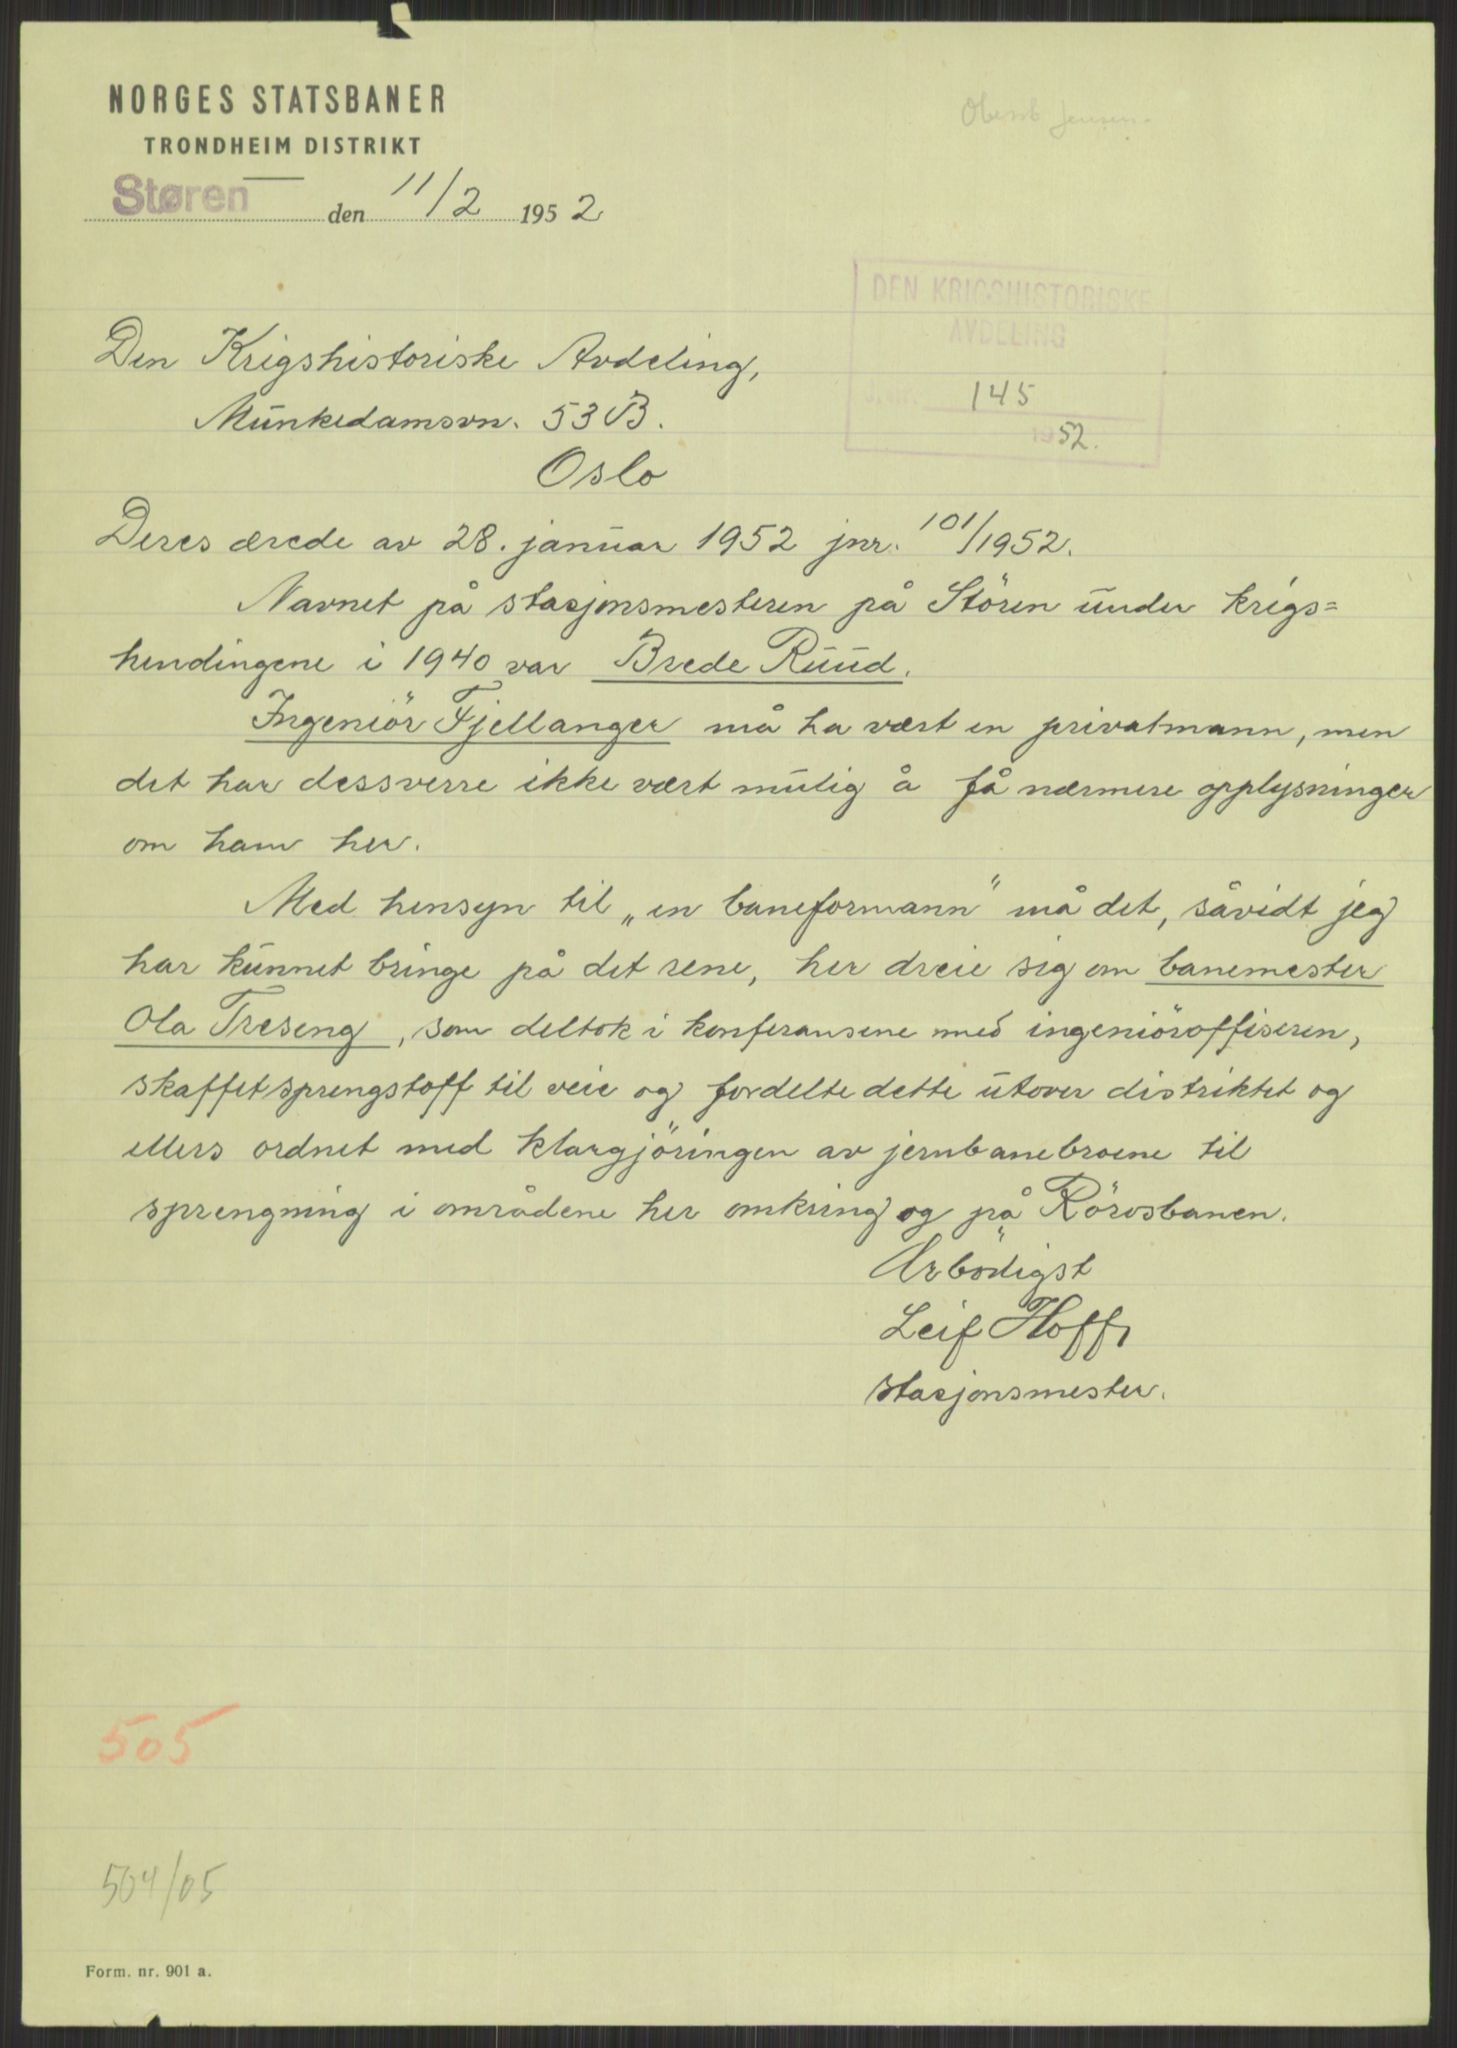 NORGES STATSBANER
TRONDHEIM DISTRIKT
Støren den 11/2 1952
DEN KRIGSHISTORISKE
AVDELING
145
1952.
Den Krigshistoriske Avdeling,
Munkedamsvn. 53 B.
Oslo
Deres ærede av 28. januar 1952 jnr. 101/1952.
Navnet på stasjonsmesteren på Stören under krigs=
hendingene i 1940 var Brede Ruud.
Ingeniör Fjellanger må ha vært en privatmann, men
det har dessverre ikke vært mulig å få nærmere opplysninger
om ham her.
Med hensyn til „en baneformann" må det, såvidt jeg
har kunnet bringe på det rene, her dreie sig om banemester
Ola Treseng, som deltok i konferansene med ingeniöroffiseren,
skaffet sprengstoff til veie og fordelte dette utover distriktet og
ellers ordnet med klargjöringen av jernbanebroene til
sprengning i områdene her omkring og på Rörosbanen.
Ærbödigst
Leif Hoff
stasjonsmester.
505
504/05
Form. nr. 901 a.